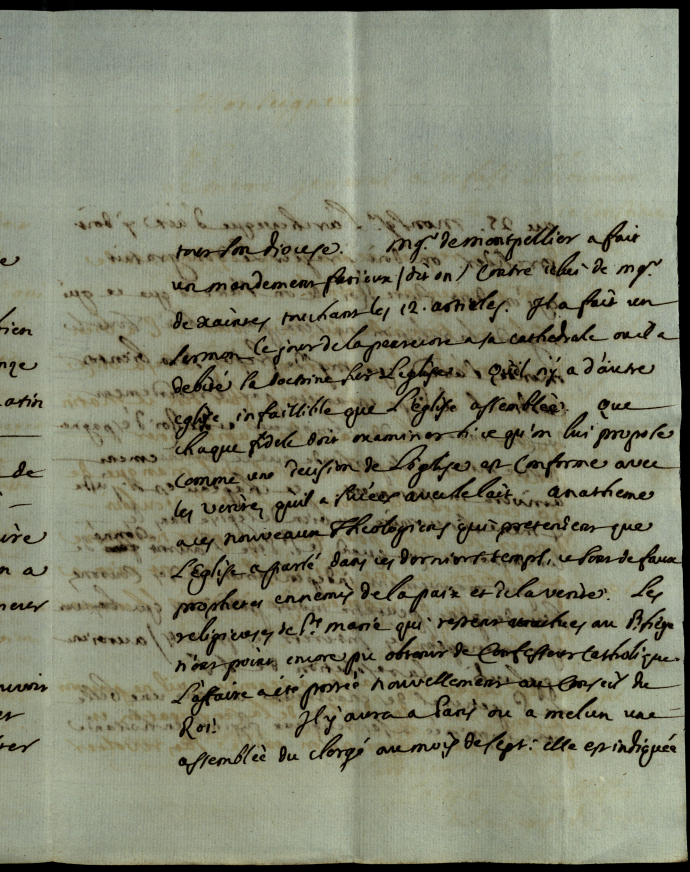 e
bien
ange
atin
de
uire
n a
nerer
ouvoir
et
ter
tout son diocese. Mgr. de Montpellier a fait
un mandement furieux /dit on/ contre celui de mgr.
de xaintes touchant les 12. articles. Il a fait un
sermon le jour de la pentecote a sa cathedrale ou il a
debité sa doctrine sur L'eglise. Qu'il n'y a d'autre
eglise infaillible que L'Eglise assemblée. que
chaque fidele doit examiner si ce qu'on lui propose
comme une decision de L'eglise est conforme avec
les verités qu'il a sucées avec le lait. anatheme
a ces nouveaux Theologiens qui pretendent que
L'Eglise a parlé dans ces derniers temps, ce sont de faux
prophetes ennemis de la paix et de la verité. Les
religieuses de Ste marie qui restent au St siége
n'ont point encore pu obtenir de Confesseur Catholique.
L'affaire a été portée nouvellement au Conseil du
Roi. Il y aura a Paris ou a melun une
assemblée du clergé au mois de sept: elle est indiquée